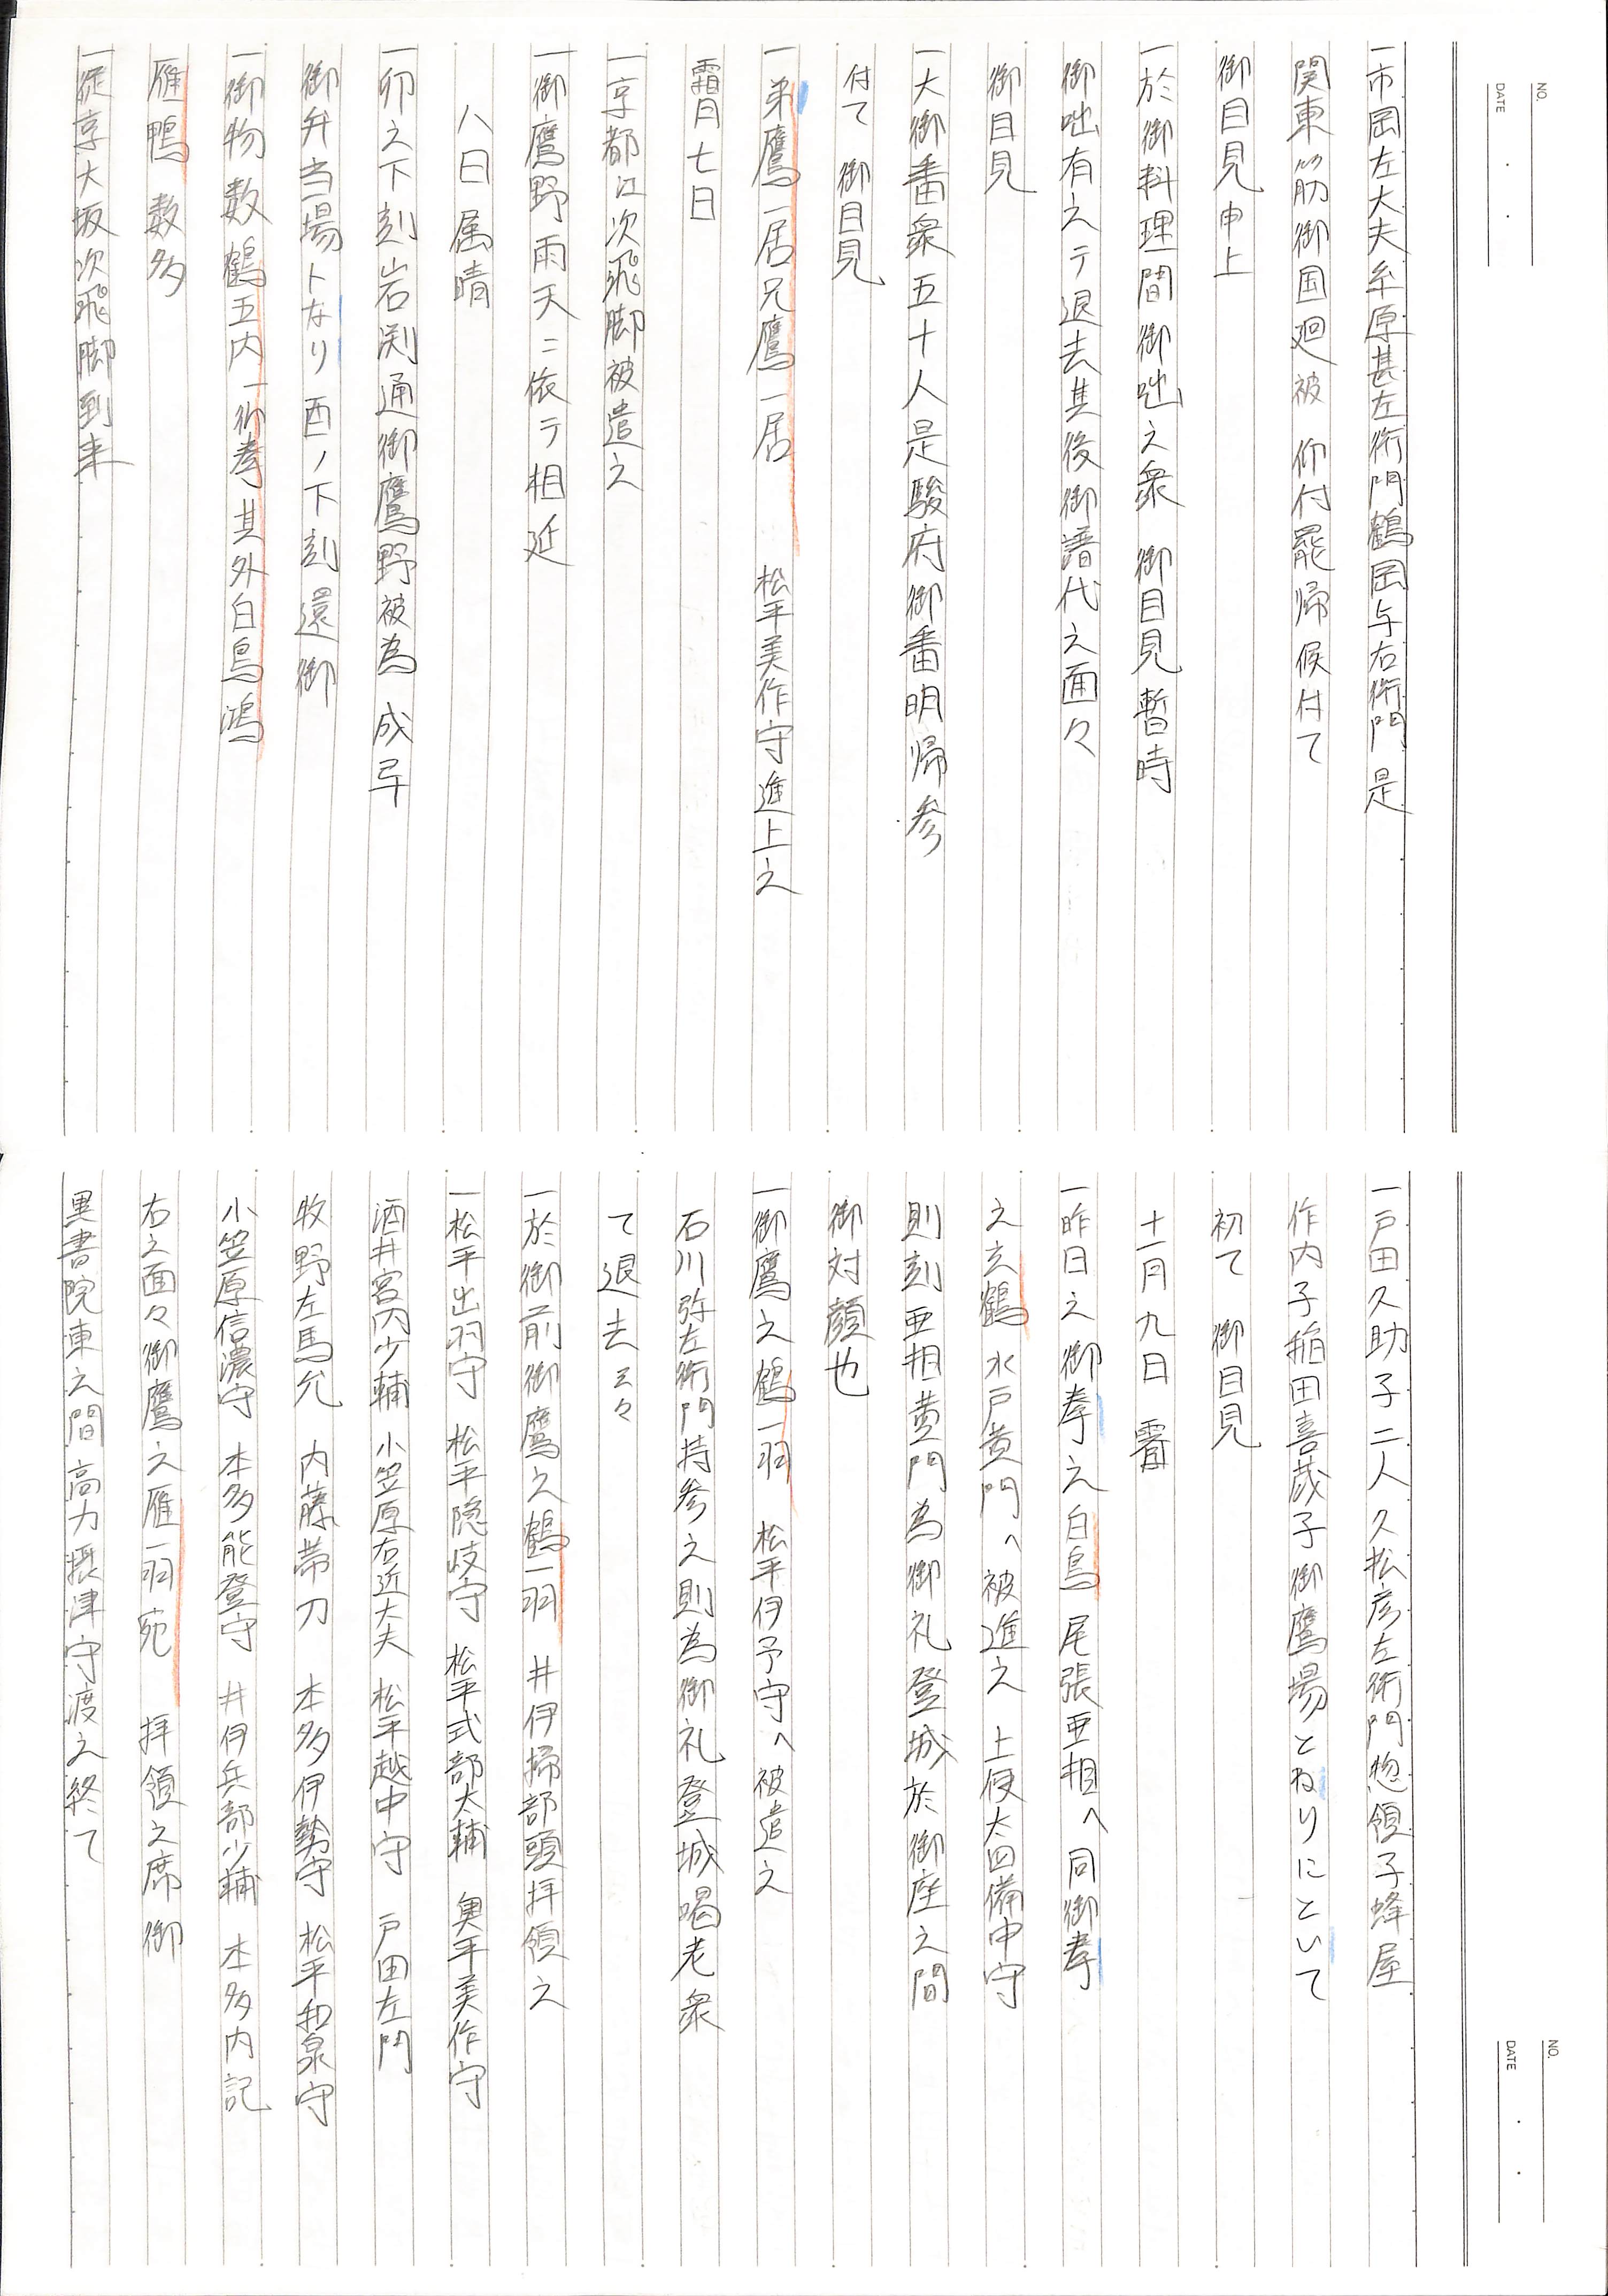 NO.
DATE
一市岡左大夫糸原甚左衛門鶴岡与右衛門 是
関東筋御国廻被 仰付罷帰候付て
御目見申上
一於御料理間御咄之衆 御目見暫時
御咄有之テ退去其後御譜代之面々
御目見
一大御番衆五十人是駿府御番明帰参
付て 御目見
一弟鷹一居兄鷹一居 松平美作守進上之
霜月七日
一京都江次飛脚被遣之
一御鷹野雨天ニ依テ相延
八日 属晴
一卯之下刻岩渕通御鷹野被為 成 㝵
御弁当場トなり酉ノ下刻 還御
一御物数鶴五内一御拳其外白鳥鴻
雁鴨 数多
一従京大坂次飛脚到来
NO.
DATE
一戸田久助子二人久松彦左衛門惣領子蜂屋
作内子稲田喜蔵子御鷹場とねりにといて
初て 御目見
十一月九日 霽
一昨日之御拳之白鳥 尾張亜相へ同御拳
之玄鶴 水戸黄門へ被進之 上使太田備中守
則刻亜相黄門為御礼登城於御座之間
御対顔也
一御鷹之鶴一羽 松平伊予守へ被遣之
石川弥左衛門持参之則為御礼登城喝老衆
て退去云々
一於御前御鷹之鶴一羽 井伊掃部頭拝領之
一松平出羽守 松平隠岐守 松平式部大輔 奥平美作守
酒井宮内少輔 小笠原右近大夫 松平越中守 戸田左門
牧野左馬允 内藤帯刀 本多伊勢守 松平和泉守
小笠原信濃守 本多能登守 井伊兵部少輔 本多内記
右之面々御鷹之雁一羽宛 拝領之席 御
黒書院東之間高力摂津守渡之終て